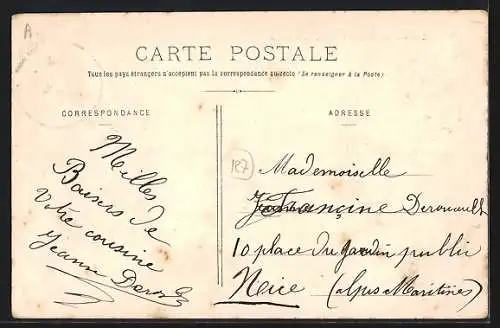 A
CARTE POSTALE
Tous les pays étrangers n'acceptent pas la correspondance au recto (Se renseigner à la Poste)
CORRESPONDANCE
ADRESSE
Milles
Baisers de
Votre cousine
Jeanne
127
Mademoiselle
Francine Derouault
10 place du jardin public
Neice (alpes Maritimes)